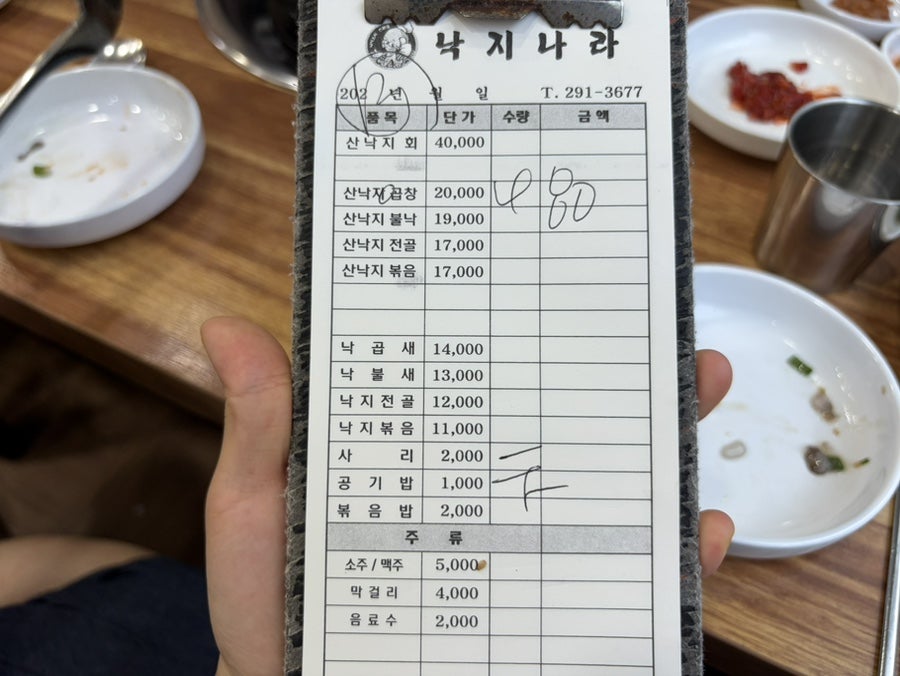 낙지나라
202 년 월 일 T. 291-3677
품목 단가 수량 금액
산낙지회 40,000
산낙지곱창 20,000 4 80
산낙지불낙 19,000
산낙지전골 17,000
산낙지볶음 17,000
낙곱새 14,000
낙불새 13,000
낙지전골 12,000
낙지볶음 11,000
사리 2,000
공기밥 1,000
볶음밥 2,000
주류
소주/맥주 5,000
막걸리 4,000
음료수 2,000